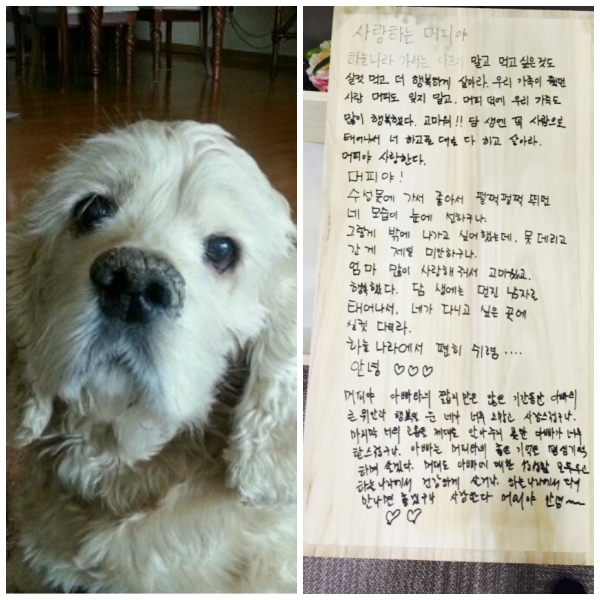 사랑하는 머피야
하늘나라 가서는 아프지 말고 먹고 싶은것도
실컷 먹고 더 행복하게 살아라. 우리 가족이 줬던
사랑 머피도 잊지 말고. 머피 덕에 우리 가족도
많이 행복했다. 고마워!! 담 생엔 꼭 사람으로
태어나서 너 하고픈 대로 다 하고 살아라.
머피야 사랑한다.
머피야!
수성못에 가서 좋아서 펄쩍펄쩍 뛰던
네 모습이 눈에 선하구나.
그렇게 밖에 나가고 싶어했는데, 못 데리고
간 게 제일 미안하구나.
엄마 많이 사랑해 줘서 고마웠고,
행복했다. 담 생에는 멋진 남자로
태어나서, 네가 다니고 싶은 곳에
실컷 다녀라.
하늘 나라에서 편히 쉬렴....
안녕 ♡♡♡
머피야 아빠하고 짧지만은 않은 기간동안 아빠의
큰 위안과 행복을 준 네가 너무 고맙고 사랑스럽구나.
마지막 너의 고통을 제대로 안아주지 못한 아빠가 너무
한스럽구나. 아빠는 머피와의 좋은 기억은 평생기억
하며 살겠다. 머피도 아빠에 대한 모두
하늘나라에서 건강하게 살거라. 하늘나라에서 다시
만나면 좋겠구나 사랑한다 머피야 안녕~~
♡♡